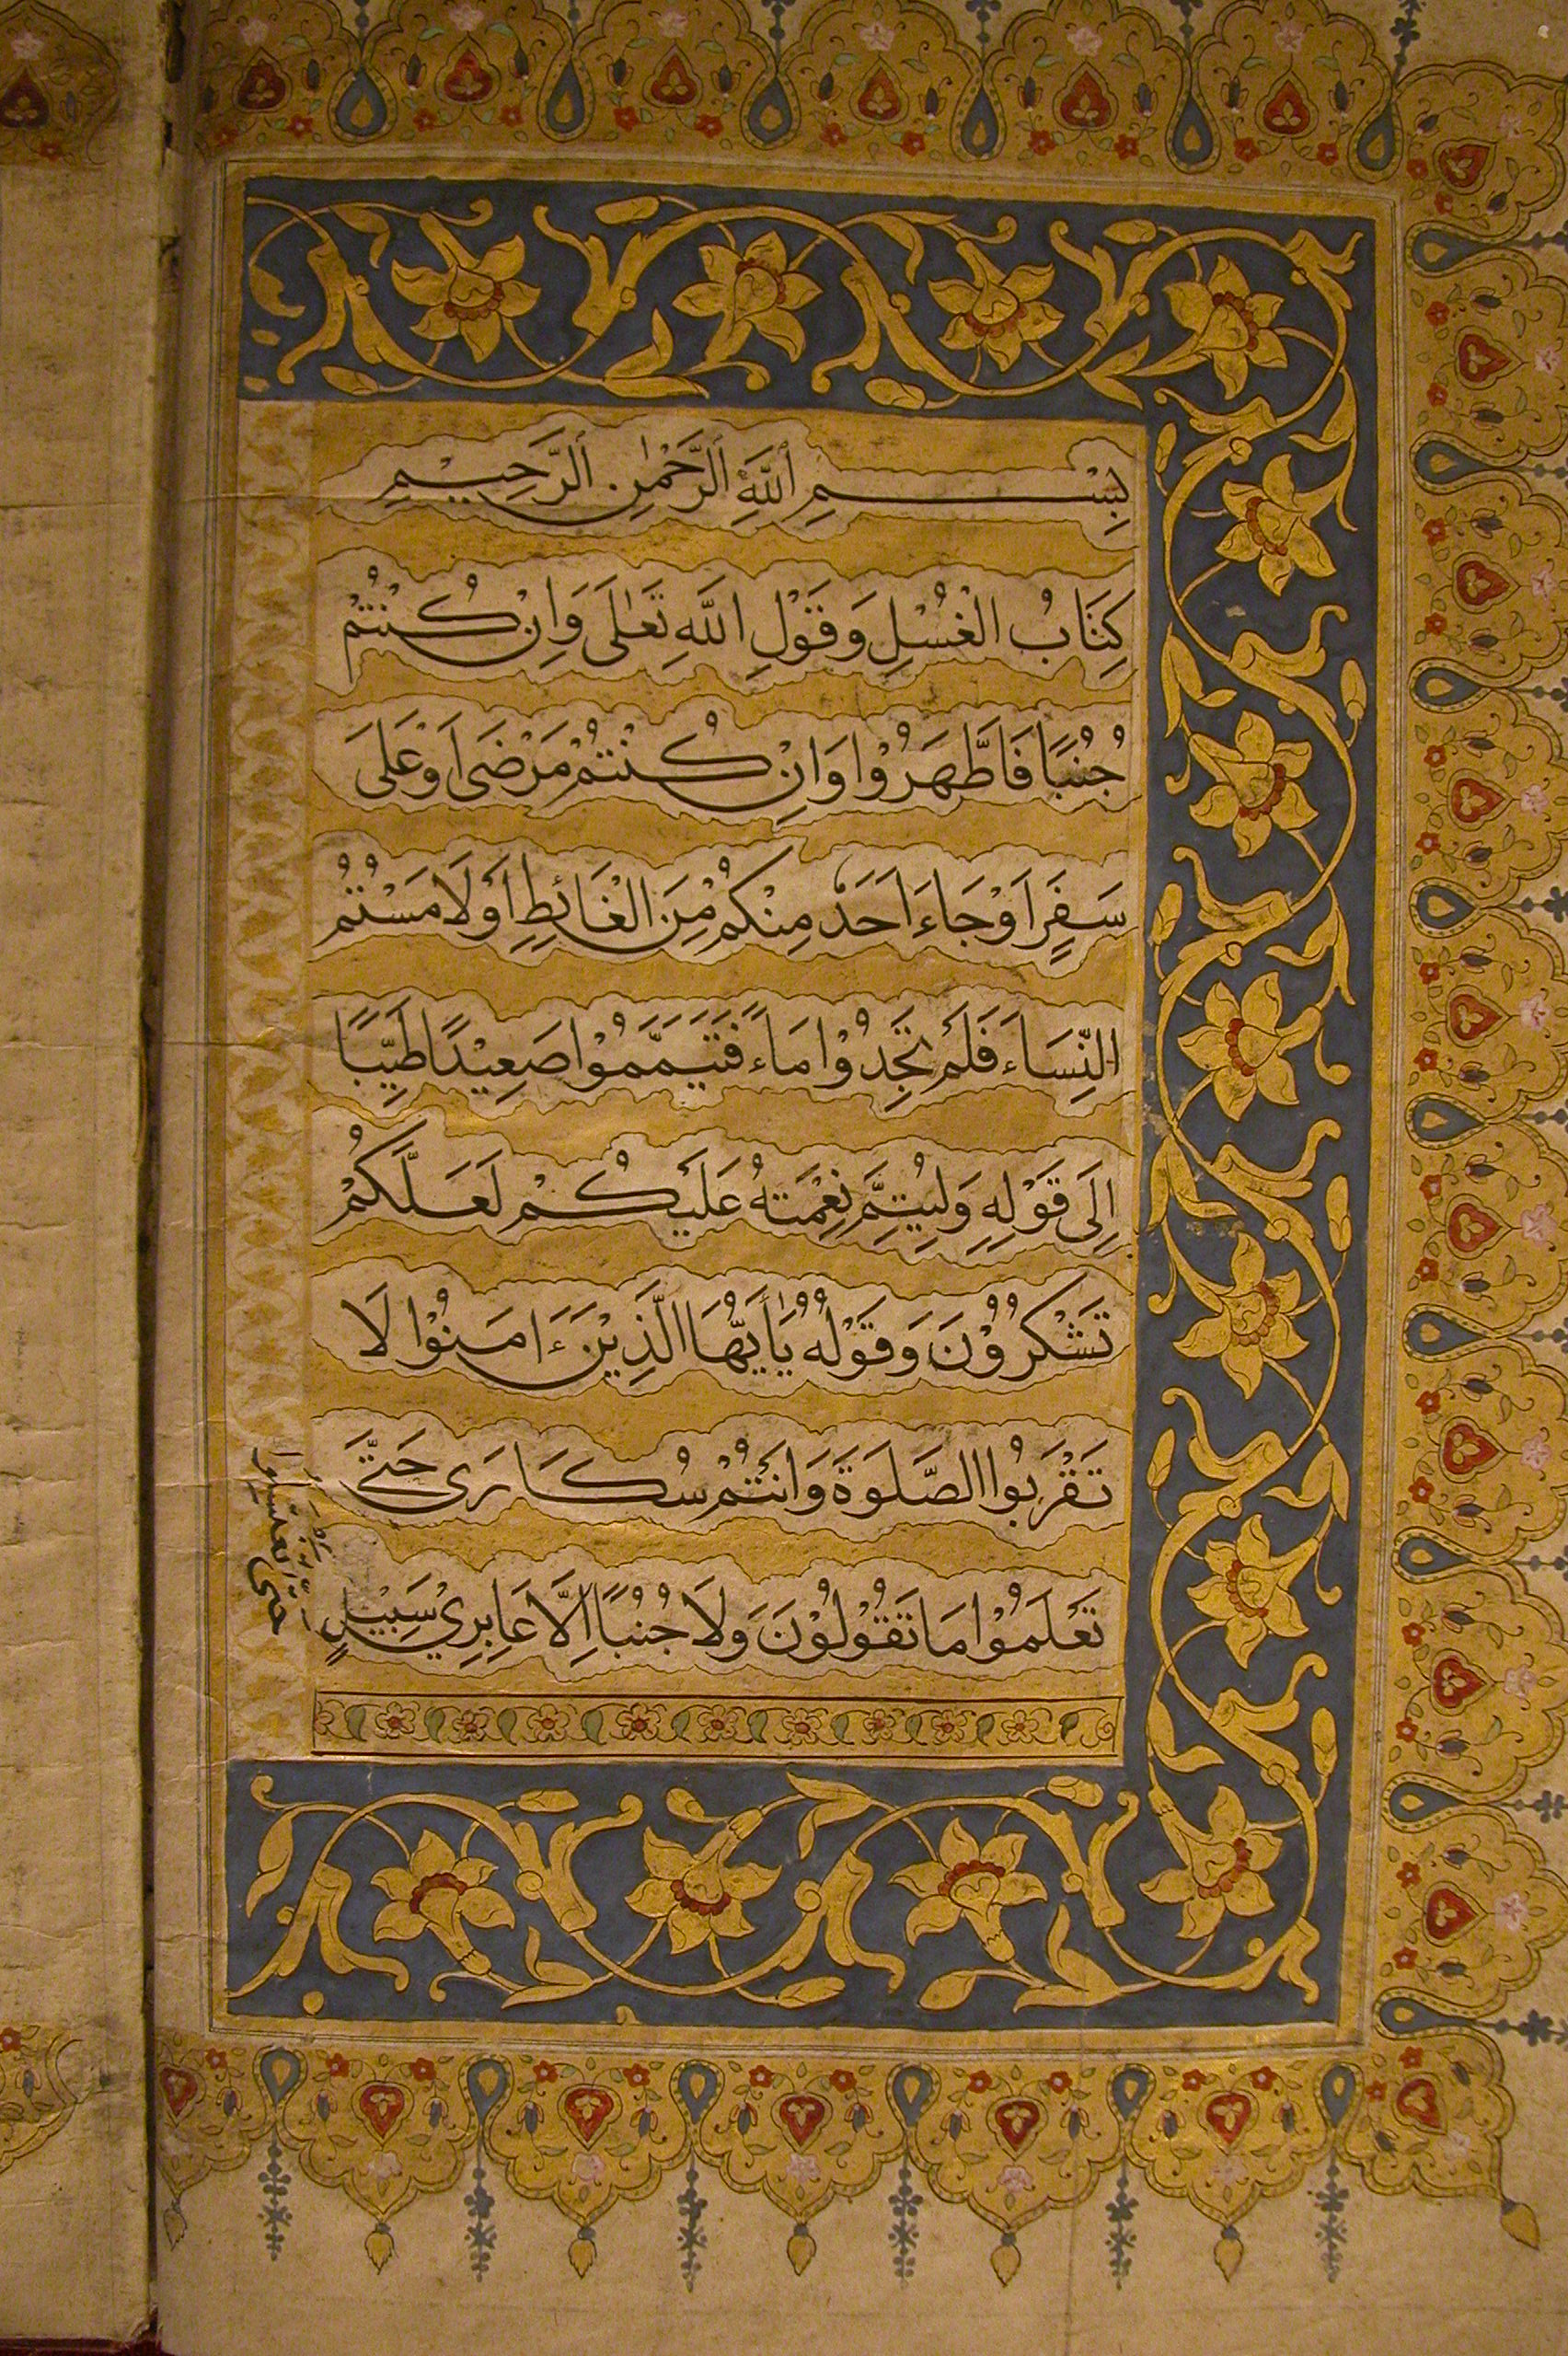 بِسْمِ ٱللَّهِ ٱلرَّحْمٰنِ ٱلرَّحِيمِ
كِتَابُ الْغُسْلِ وَقَوْلِ اللَّهِ تَعٰلَى وَاِنْ كُنْتُمْ
جُنُبًا فَاطَّهَرُوْا وَاِنْ كُنْتُمْ مَرْضَى اَوْ عَلَى
سَفَرٍ اَوْ جَاءَ اَحَدٌ مِنْكُمْ مِنَ الْغَائِطِ اَوْ لَامَسْتُمُ
النِّسَاءَ فَلَمْ تَجِدُوْا مَاءً فَتَيَمَّمُوْا صَعِيْدًا طَيِّبًا
اِلَى قَوْلِهِ وَلِيُتِمَّ نِعْمَتَهُ عَلَيْكُمْ لَعَلَّكُمْ
تَشْكُرُوْنَ وَقَوْلُهُ يٰأَيُّهَا الَّذِيْنَ ءَامَنُوْا لَا
تَقْرَبُوا الصَّلَوةَ وَاَنْتُمْ سُكَارَى حَتَّى
تَعْلَمُوْا مَا تَقُوْلُوْنَ وَلَا جُنُبًا اِلَّا عَابِرِيْ سَبِيْلٍ
حَتَّى تَغْتَسِلُوا